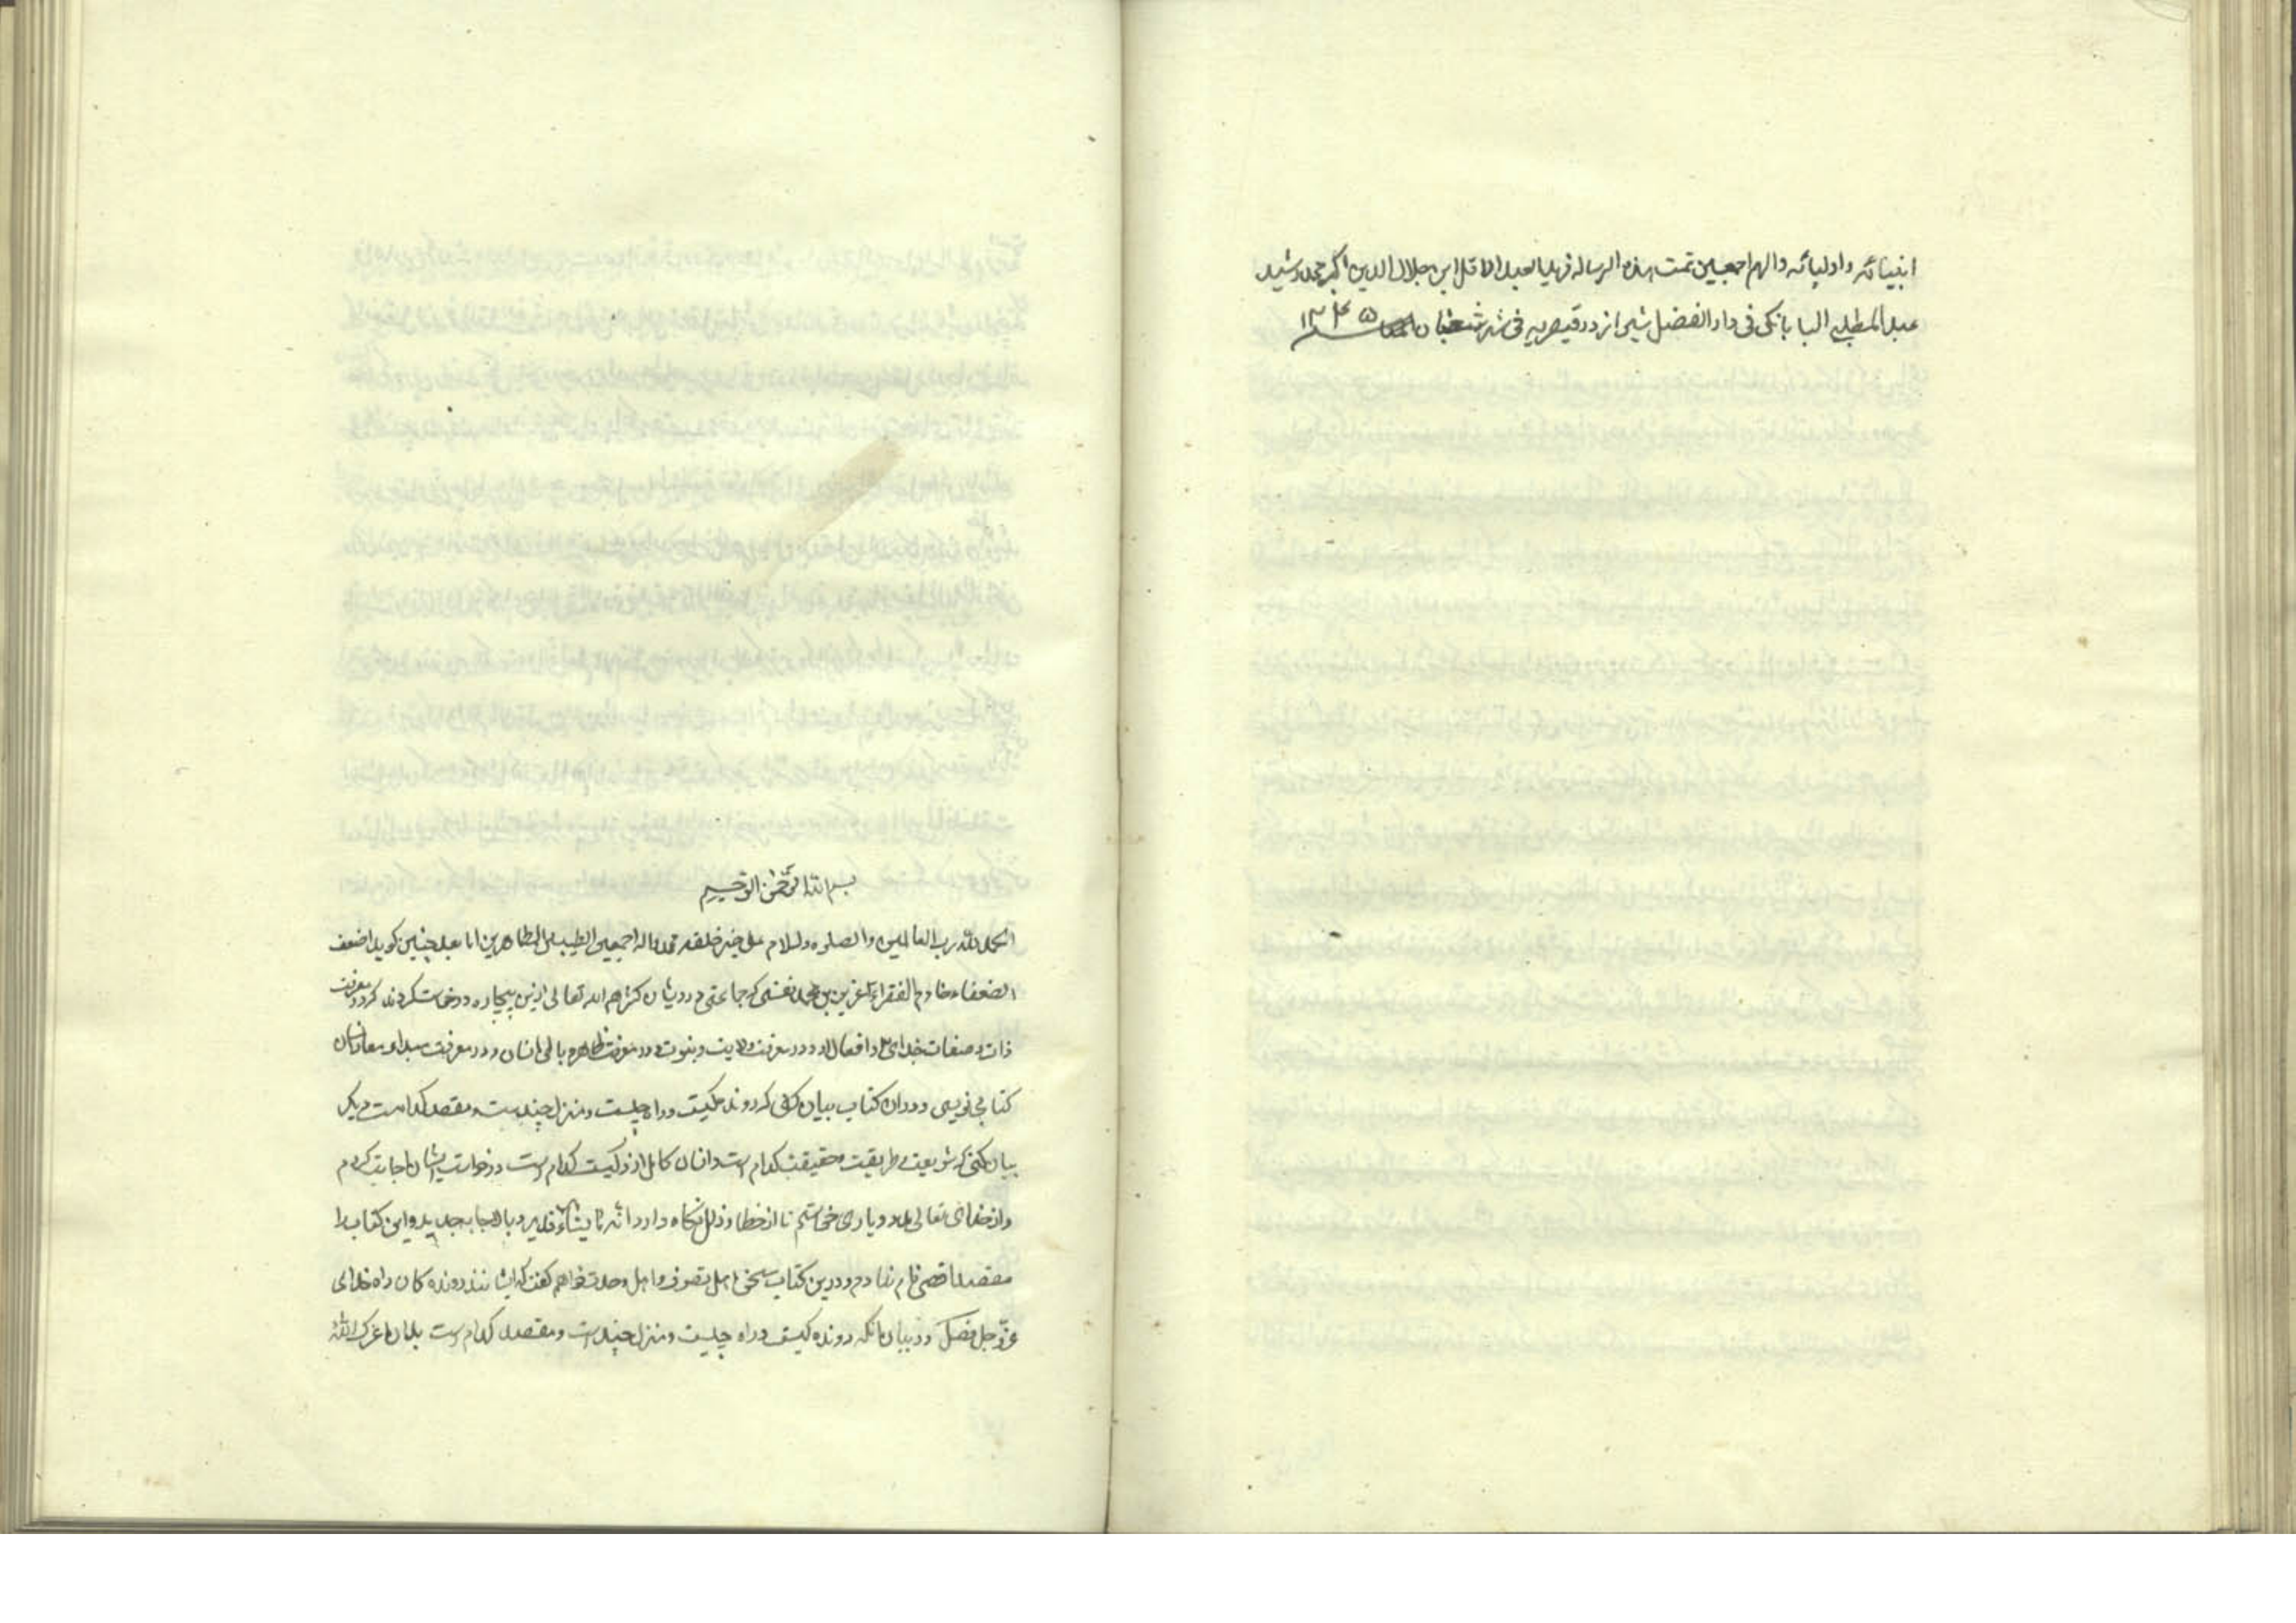 انبیائه و اولیائه و الهم اجمعین تمت هذه الرساله فی ید العبد الاقل ابن جلال الدین اکبر محمد رشید
عبدالمطلب البابانکی فی دار الفضل شیراز در قیصریه فی شهر شعبان ۱۳۴۵
بسم الله الرحمن الرحیم
الحمد لله رب العالمین والصلوه والسلام علی خیر خلقه محمد واله اجمعین الطیبین الطاهرین اما بعد چنین کوید اضعف
الضعفاء خادم الفقراء عزیز بن محمد نفسی که جماعتی درویشان کثرهم الله تعالی ازین بیچاره درخواست کردند که در معرفت
ذات و صفات خدای و افعال او و در معرفت ولایت و نبوت و در معرفت ظاهر و باطن انسان و در معرفت مبداء و معاد انسان
کتابی نویسی و در ان کتاب بیان کنی که رونده کیست و راه چیست و منزل چندست و مقصد کدامست دیکر
بیان کنی که شریعت و طریقت و حقیقت کدام است و انسان کامل ازاد کیست کدام است درخواست ایشان اجابت کردم
و از خدای تعالی مدد و یاری خواستم تا از خطا و زلل نکاه دارد انه علی ما یشاء قدیر و بالاجابه جدیر و این کتاب را
مقصد اقصی نام نهادم و درین کتاب سخن اهل تصوف و اهل وحدت خواهم کفت که ایشانند رونده کان راه خدای
عزّ و جل فصل در بیان انکه رونده کیست و راه چیست و منزل چندست و مقصد کدام است بدان اعزک الله